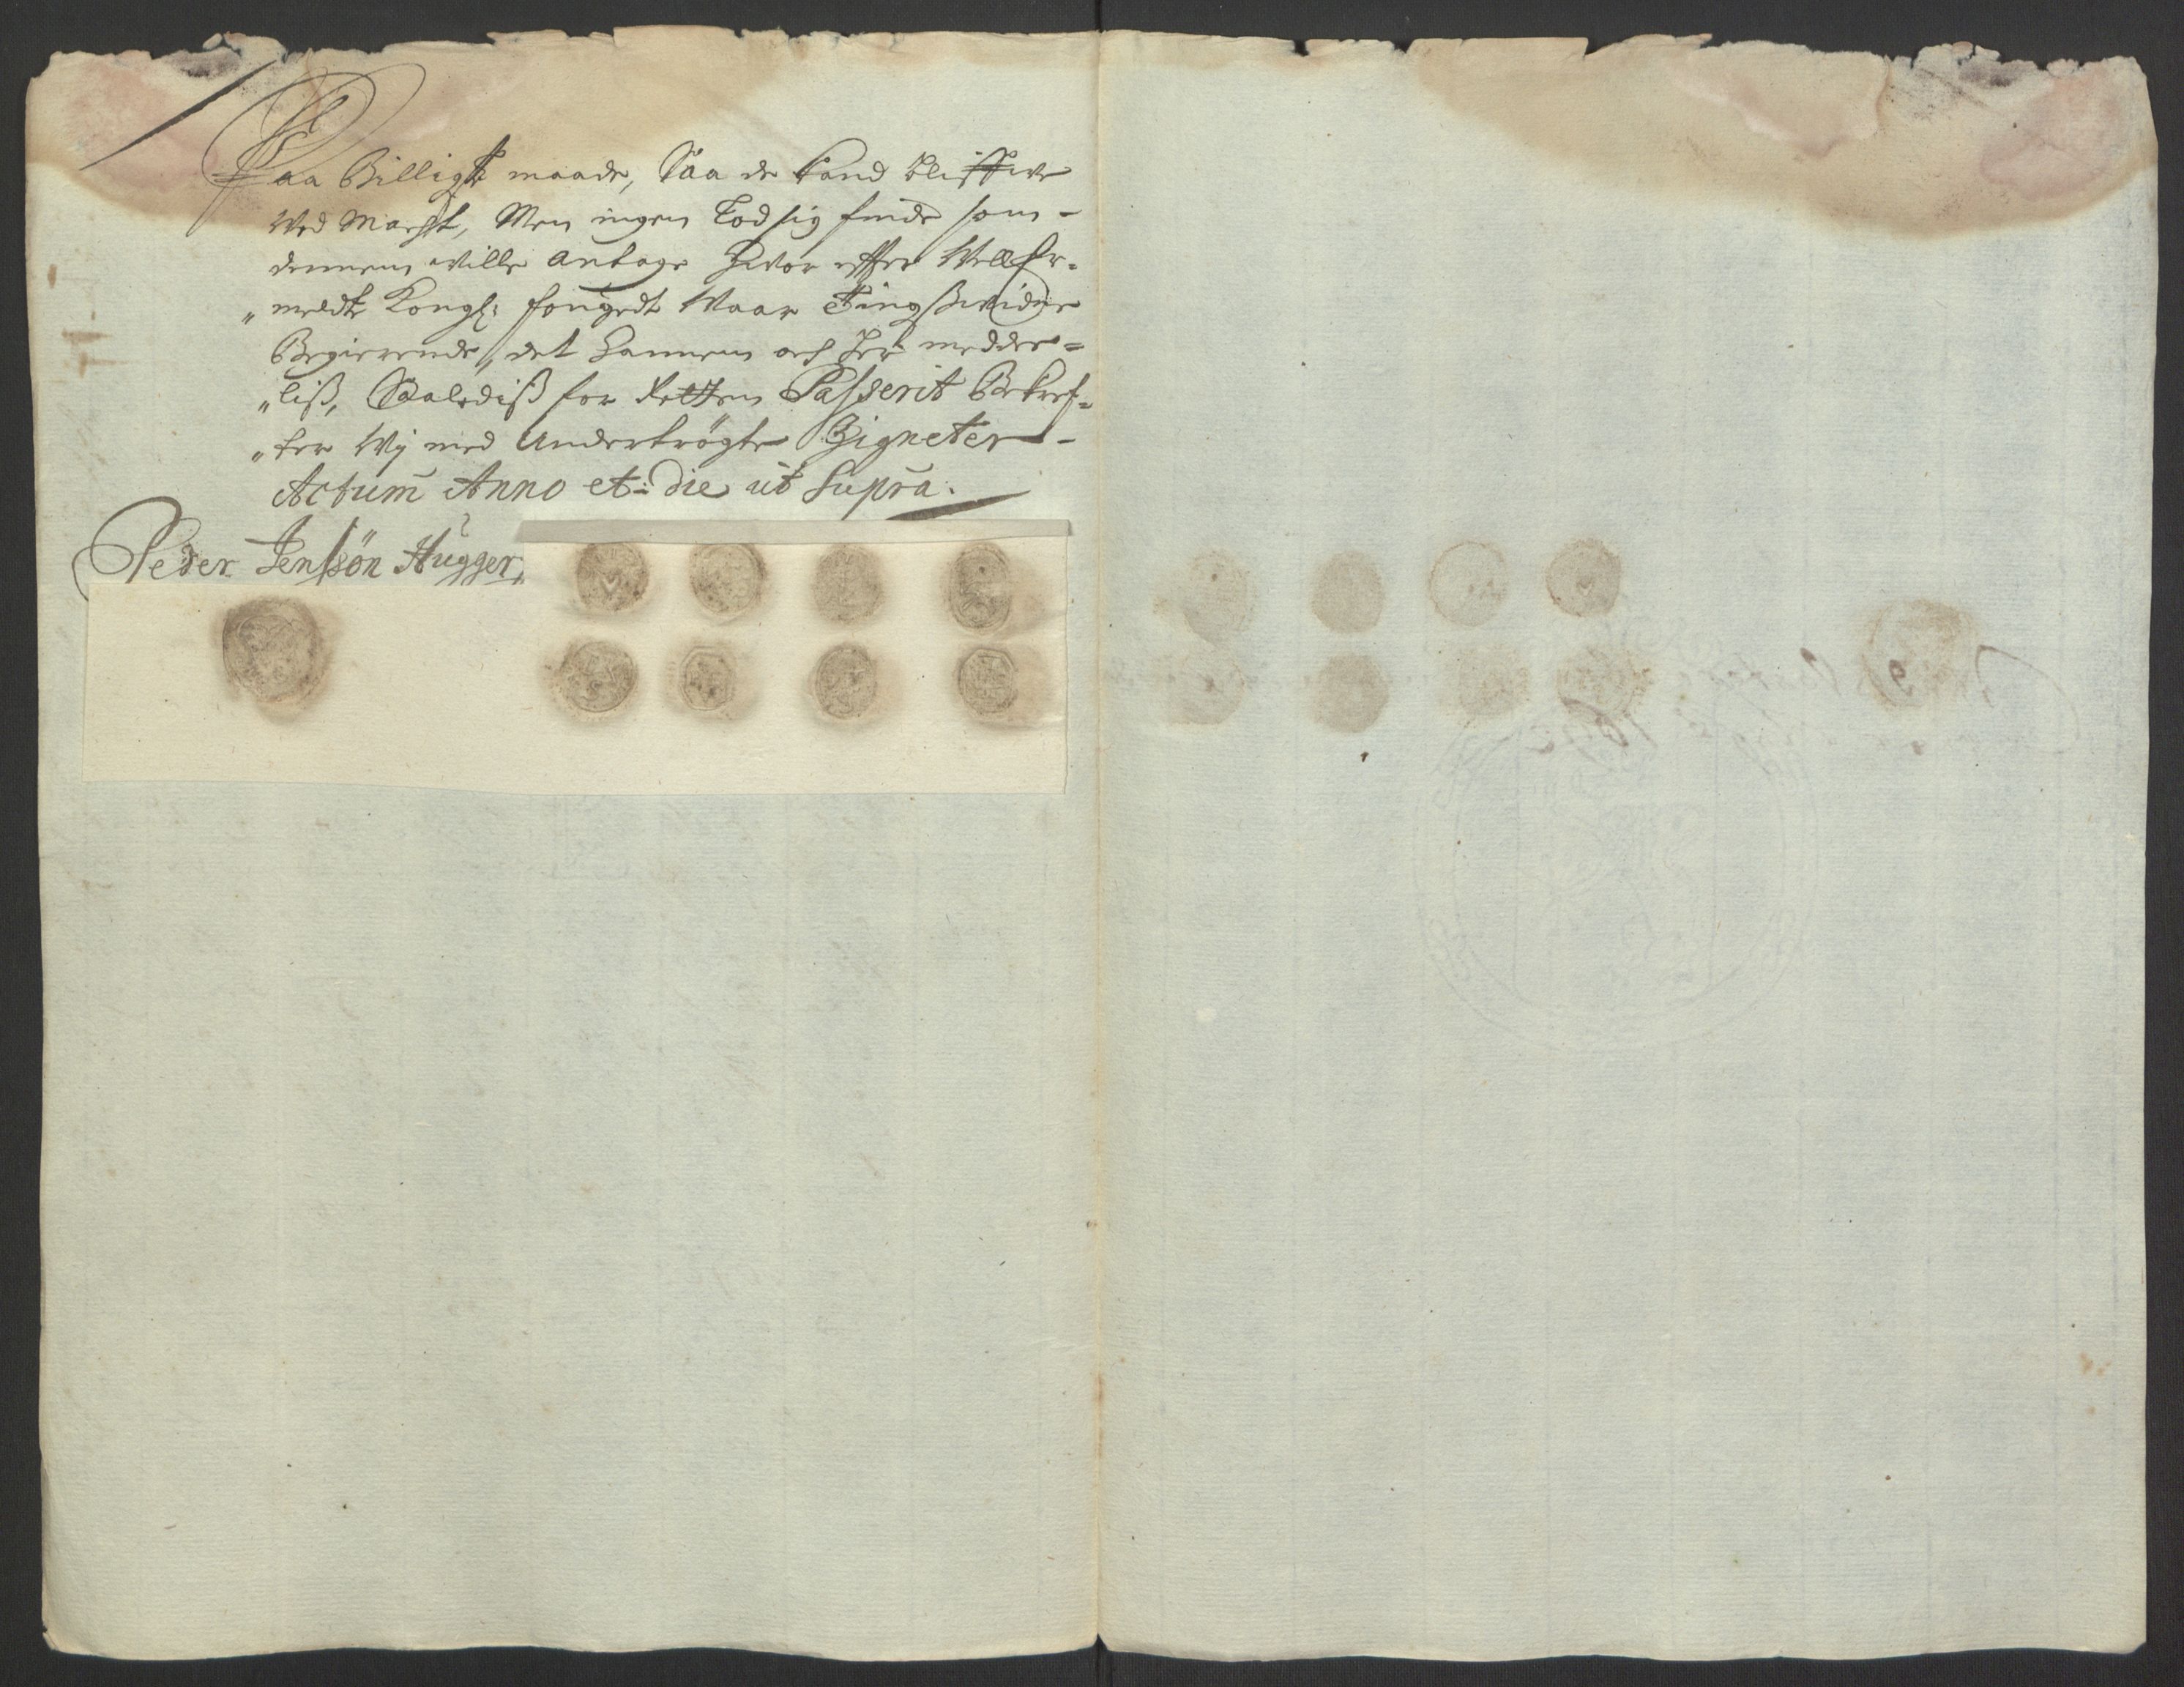 Paa Billigste maade, Saa de kand bliffwe
Wed Macht, Men ingen Lod sig finde som -
dennem wille Antage Hvor effter Welbe-
"meldte Kongl: fougedt Waar Tingswidne
Begierende, det hannem och her meddee=
"liß, Saalediß for Retten Passerit Bekref=
"ter Wij med Undertrögte Zigneter -
Actum Anno et die ut Supra.
Peder Jenssön Hugger,